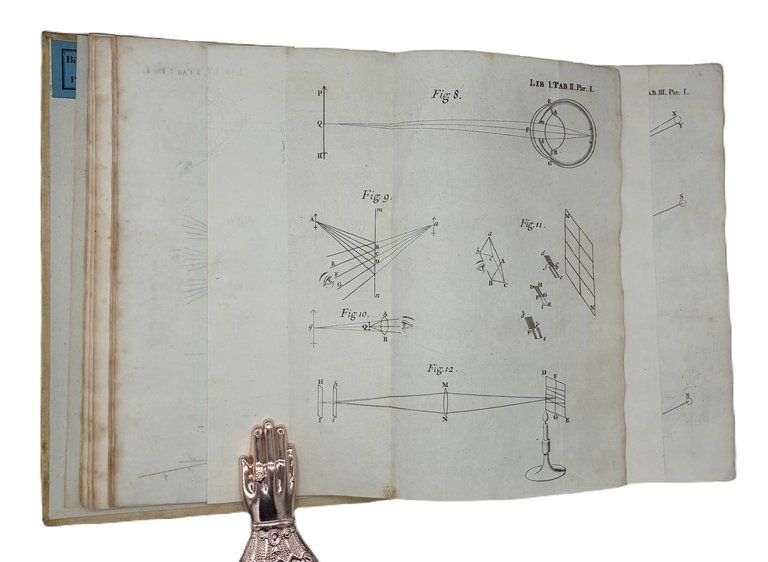 LIB I. TAB. II. Par. I.
Fig 8.
P
Q
R
E
A
B
G
Fig. 9.
A
m
a
B
C
D
E
F
G
n
Fig. 11.
M
a
A
B
C
N
D
H
G
E
Fig. 10.
q
Q
A
B
Fig. 12.
H
h
I
i
M
N
D
F
G
E
AB. III. Par. I.
X
Y
S
S